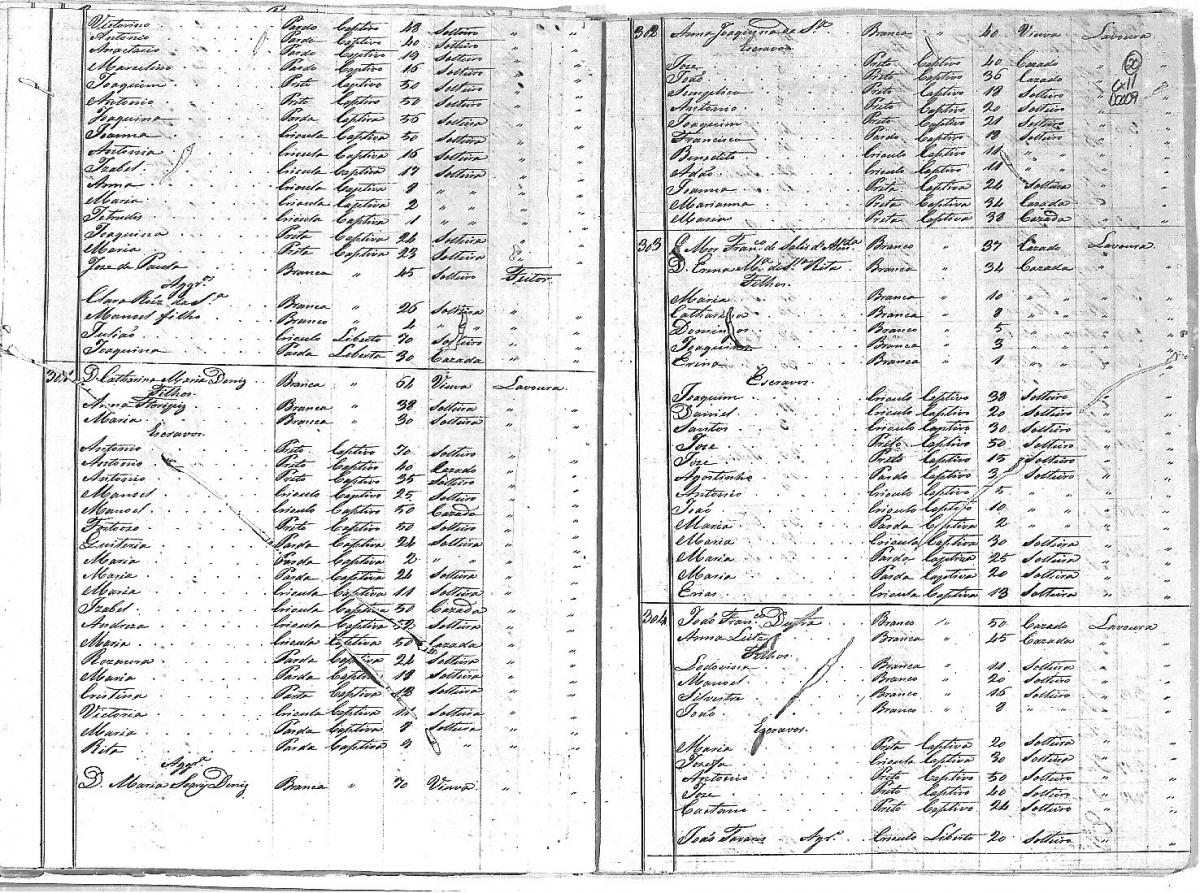 Victorino Pardo Captivo 48 Solteiro "
Antonio Pardo Captivo 40 Solteiro "
Anactacio Pardo Captivo 19 Solteiro "
Marcelino Pardo Captivo 16 Solteiro "
Joaquim Preto Captivo 50 Solteiro "
Antonio Preto Captivo 50 Solteiro "
Joaquina Parda Captiva 36 Solteira "
Joanna Crioula Captiva 50 Solteira "
Antonia Crioula Captiva 16 Solteira "
Izabel Crioula Captiva 17 Solteira "
Anna Crioula Captiva 9 " "
Maria Crioula Captiva 2 " "
Crioula Captiva 1 " "
Joaquina Preta Captiva 24 Solteira "
Maria Preta Captiva 23 Solteira "
Joze de Paula Branco " 45 Solteiro Feitor
Aggr.s
Clara da S.a Branca " 26 Solteira "
Manoel filho Branco " 4 " "
Julião Crioulo Liberto 70 Solteiro "
Joaquina Parda Liberta 30 Cazada "
301 D. Catharina Maria Deniz Branca " 64 Viuva Lavoura
Filhos
Anna Branca " 38 Solteira "
Maria Branca " 30 Solteira "
Escravos
Antonio Preto Captivo 70 Solteiro "
Antonio Preto Captivo 40 Cazado "
Antonio Preto Captivo 35 Solteiro "
Manoel Crioulo Captivo 25 Solteiro "
Manoel Crioulo Captivo 50 Cazado "
Preto Captivo 50 Solteiro "
Quiteria Parda Captiva 24 Solteira "
Maria Parda Captiva 2 " "
Maria Parda Captiva 24 Solteira "
Maria Crioula Captiva 11 Solteira "
Izabel Crioula Captiva 50 Cazada "
Andreza Crioula Captiva 52 "
Maria Crioula Captiva Cazada "
Rozaura Parda Captiva 24 Solteira "
Maria Parda Captiva 18 Solteira "
Cristina Captiva 12 Solteira "
Victoria Crioula Captiva 11 Solteira "
Maria Parda Captiva 9 Solteira "
Rita Parda Captiva 3 " "
Aggr.a
D. Maria Deniz Branca " 70 Viuva "
302 Anna Joaquina da S.a Branca " 40 Viuva Lavoura
Escravos
Joze Preto Captivo 40 Cazado "
João Preto Captivo 36 Cazado "
Simplicio Preto Captivo 18 Solteiro "
Antonio Preto Captivo 20 Solteiro "
Joaquim Preto Captivo 21 Solteiro "
Francisco Pardo Captivo 19 Solteiro "
Benedito Crioulo Captivo 11 " "
Adão Crioulo Captivo 11 " "
Joanna Preta Captiva 24 Solteira "
Marianna Preta Captiva 34 Cazada "
Maria Preta Captiva 38 Cazada "
303 G. Mor Fran.co de Salis Branco " 37 Cazado Lavoura
D. M.a de S.ta Rita Branca " 34 Cazada "
Filhos
Maria Branca " 10 " "
Catharina Branca " 8 " "
Domingos Branco " 5 " "
Branca " 3 " "
Branca " 1 " "
Escravos
Joaquim Crioulo Captivo 38 Solteiro "
Daniel Crioulo Captivo 20 Solteiro "
Santos Crioulo Captivo 30 Solteiro "
Joze Preto Captivo 50 Solteiro "
Joze Preto Captivo 15 Solteiro "
Agostinho Pardo Captivo 3 Solteiro "
Antonio Crioulo Captivo 5 " "
João Crioulo Captivo 10 " "
Maria Parda Captiva 2 " "
Maria Crioula Captiva 30 Solteira "
Maria Parda Captiva 25 Solteira "
Maria Parda Captiva 20 Solteira "
Crioula Captiva 13 Solteira "
304 João Fran.co Dutra Branco " 50 Cazado Lavoura
Anna Leite Branca " 45 Cazada "
Filhos
Branca " 11 Solteira "
Manoel Branco " 20 Solteiro "
Silvestre Branco " 16 Solteiro "
João Branco " 8 " "
Escravos
Maria Preta Captiva 20 Solteira "
Crioula Captiva 30 Solteira "
Antonio Preto Captivo 50 Solteiro "
Joze Preto Captivo 40 Solteiro "
Caetano Preto Captivo 24 Solteiro "
João Agr.o Crioulo Liberto 20 Solteiro "